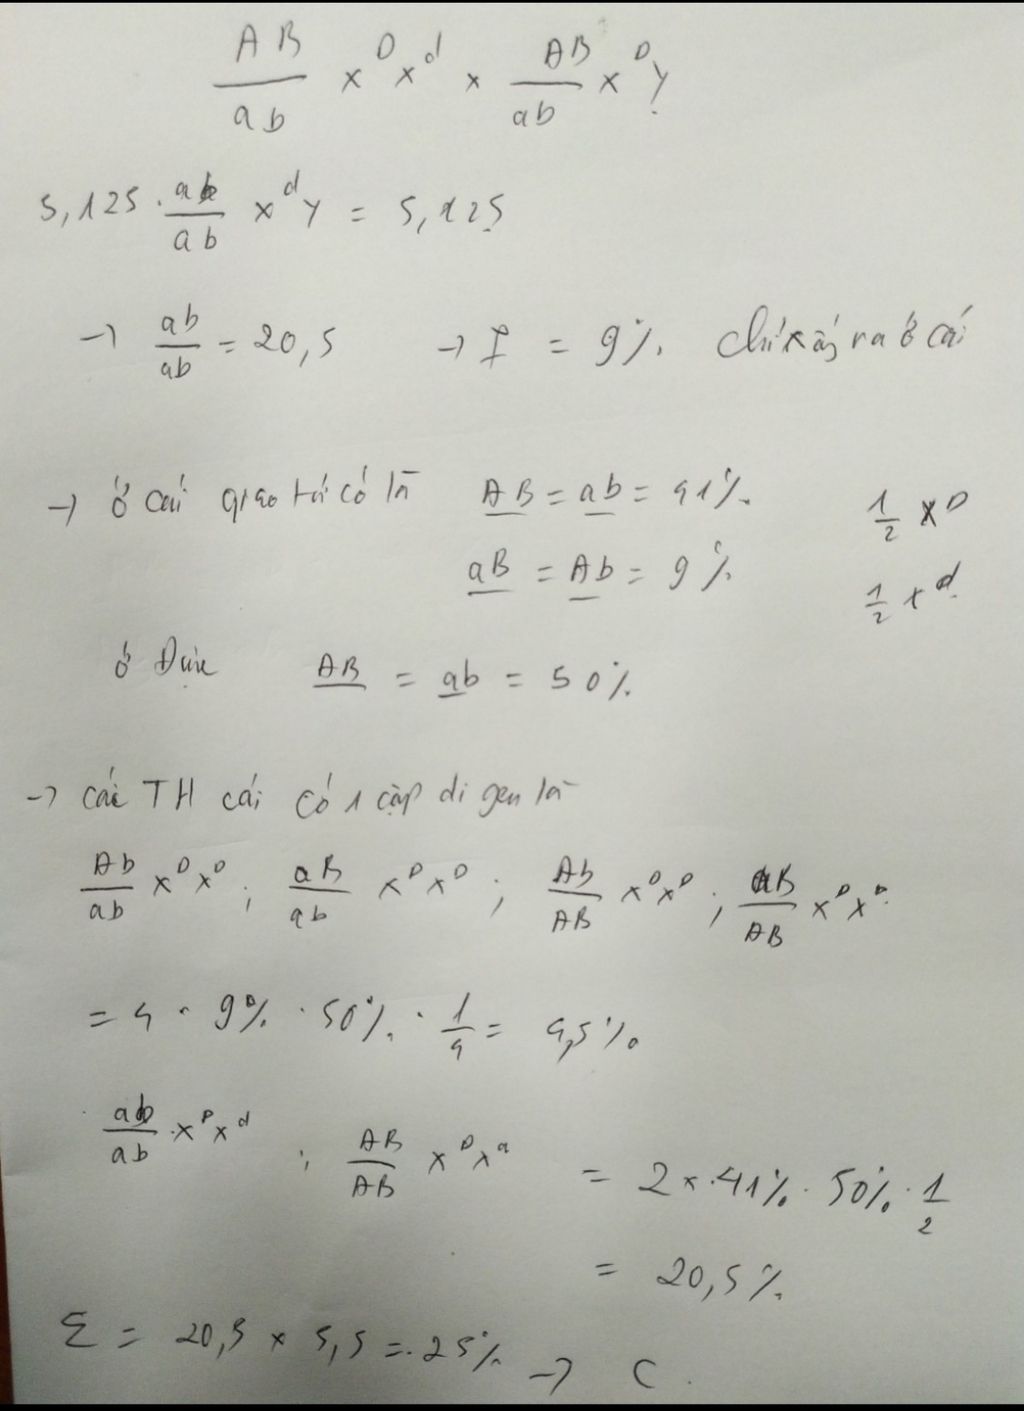 AB/ab X^D X^d x AB/ab X^D Y
5,125 . ab/ab X^d Y = 5,125
→ ab/ab = 20,5 → f = 9% chỉ xảy ra ở cái
→ ở cái giao tử có là AB = ab = 41% 1/2 X^D
aB = Ab = 9% 1/2 X^d
ở Đực AB = ab = 50%
→ các TH cái có 1 cặp dị gen là
Ab/ab X^D X^D ; aB/ab X^D X^D ; Ab/AB X^D X^D ; aB/AB X^D X^D
= 4 . 9% . 50% . 1/4 = 4,5%
ab/ab X^D X^d ; AB/AB X^D X^d = 2 x . 41% . 50% . 1/2
= 20,5%
Σ = 20,5 x 5,5 = 25% → C.